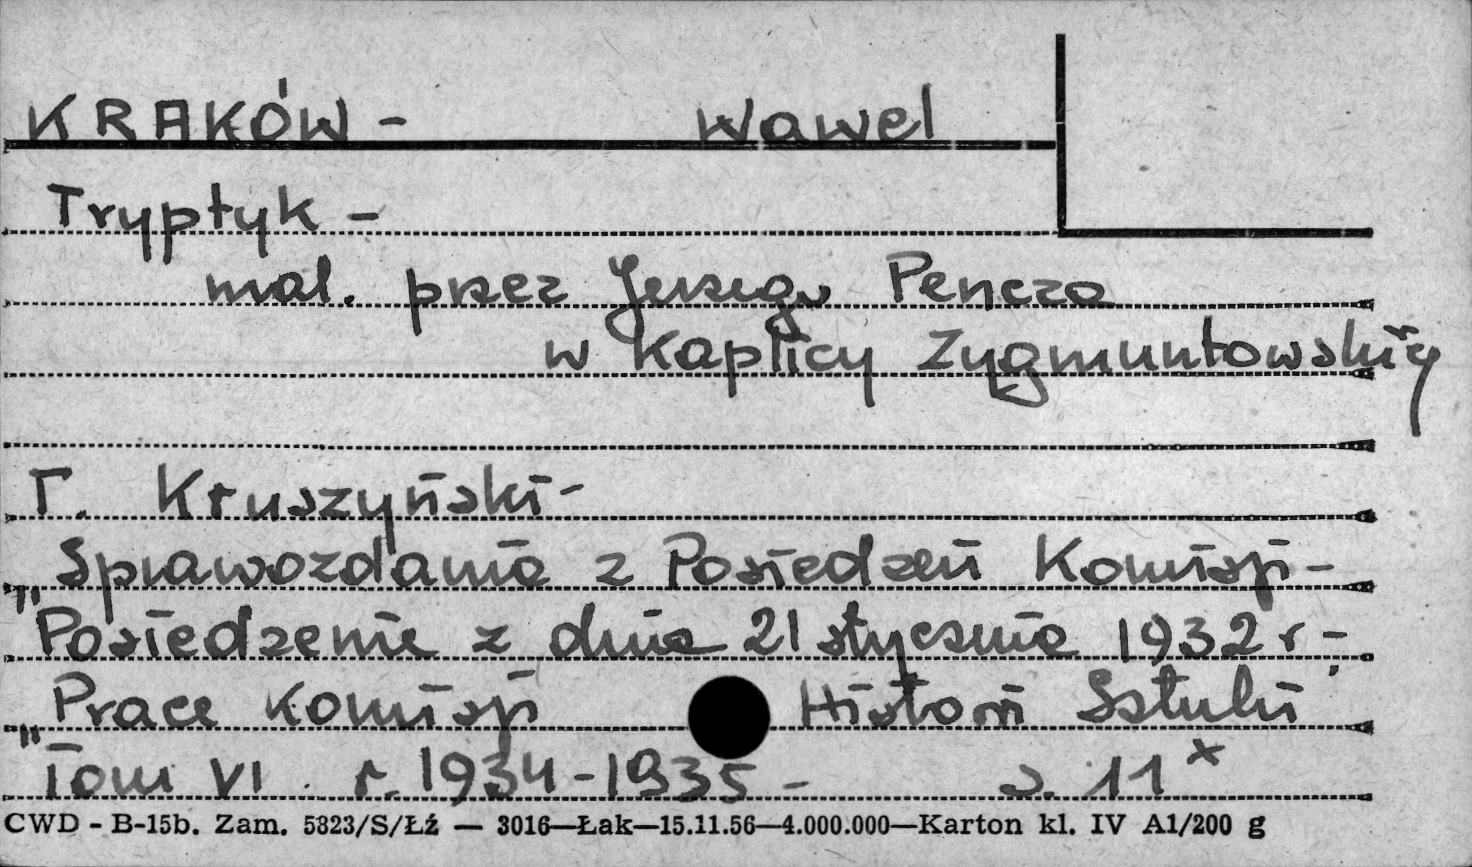 KRAKÓW - Wawel
Tryptyk -
mal. przez Jerzego Pencza
w Kaplicy Zygmuntowskiej
T. Kruszyński -
Sprawozdania z Posiedzeń Komisji -
"Posiedzenie z dnia 21 stycznia 1932 r -
Prace Komisji Historii Sztuki
"Tom VI. r. 1934-1935 - s. 11*
CWD - B-15b. Zam. 5823/S/Łź — 3016—Łak—15.11.56—4.000.000—Karton kl. IV A1/200 g